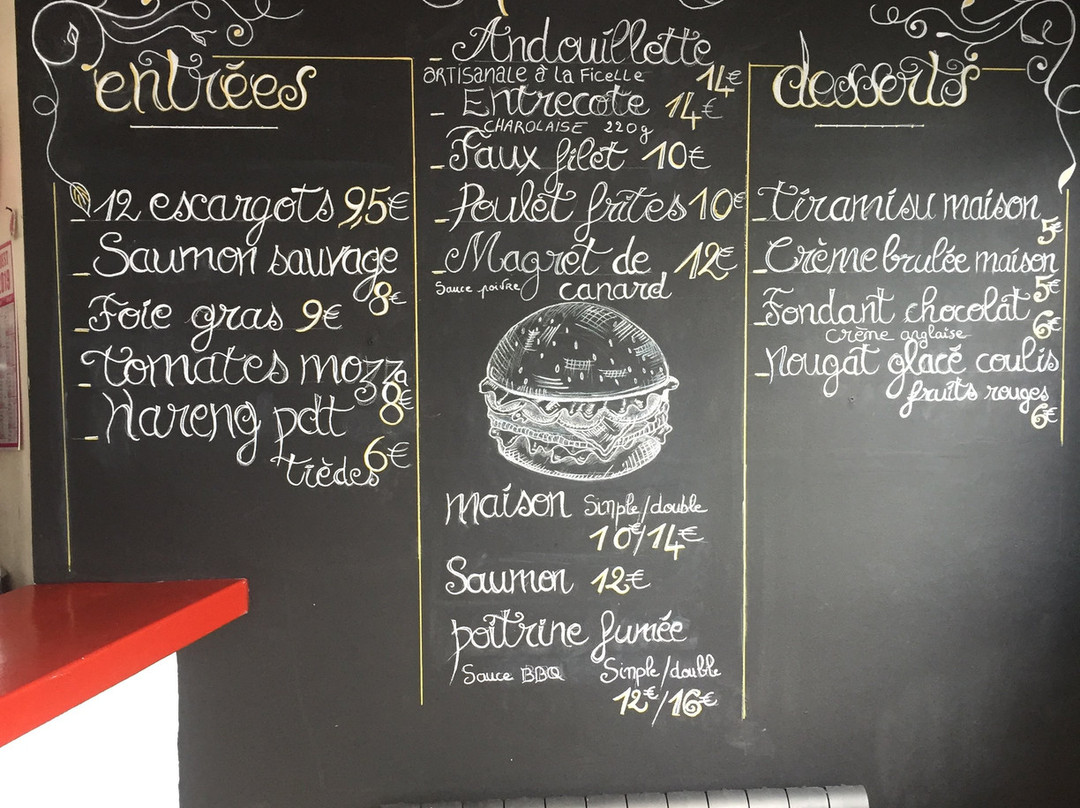 entrées
12 escargots 9,5€
Saumon sauvage
8€
Foie gras 9€
Tomates mozza
8€
Hareng pdt
tièdes 6€
Andouillette
ARTISANALE à la Ficelle 14€
Entrecote 14€
CHAROLAISE 220g
Faux filet 10€
Poulet frites 10€
Magret de 12€
Sauce poivre canard
maison Simple/double
10€/14€
Saumon 12€
poitrine fumée
Sauce BBQ Simple/double
12€/16€
desserts
Tiramisu maison
5€
Crème brulée maison
5€
Fondant chocolat
crème anglaise 6€
Nougat glacé coulis
fruits rouges
6€